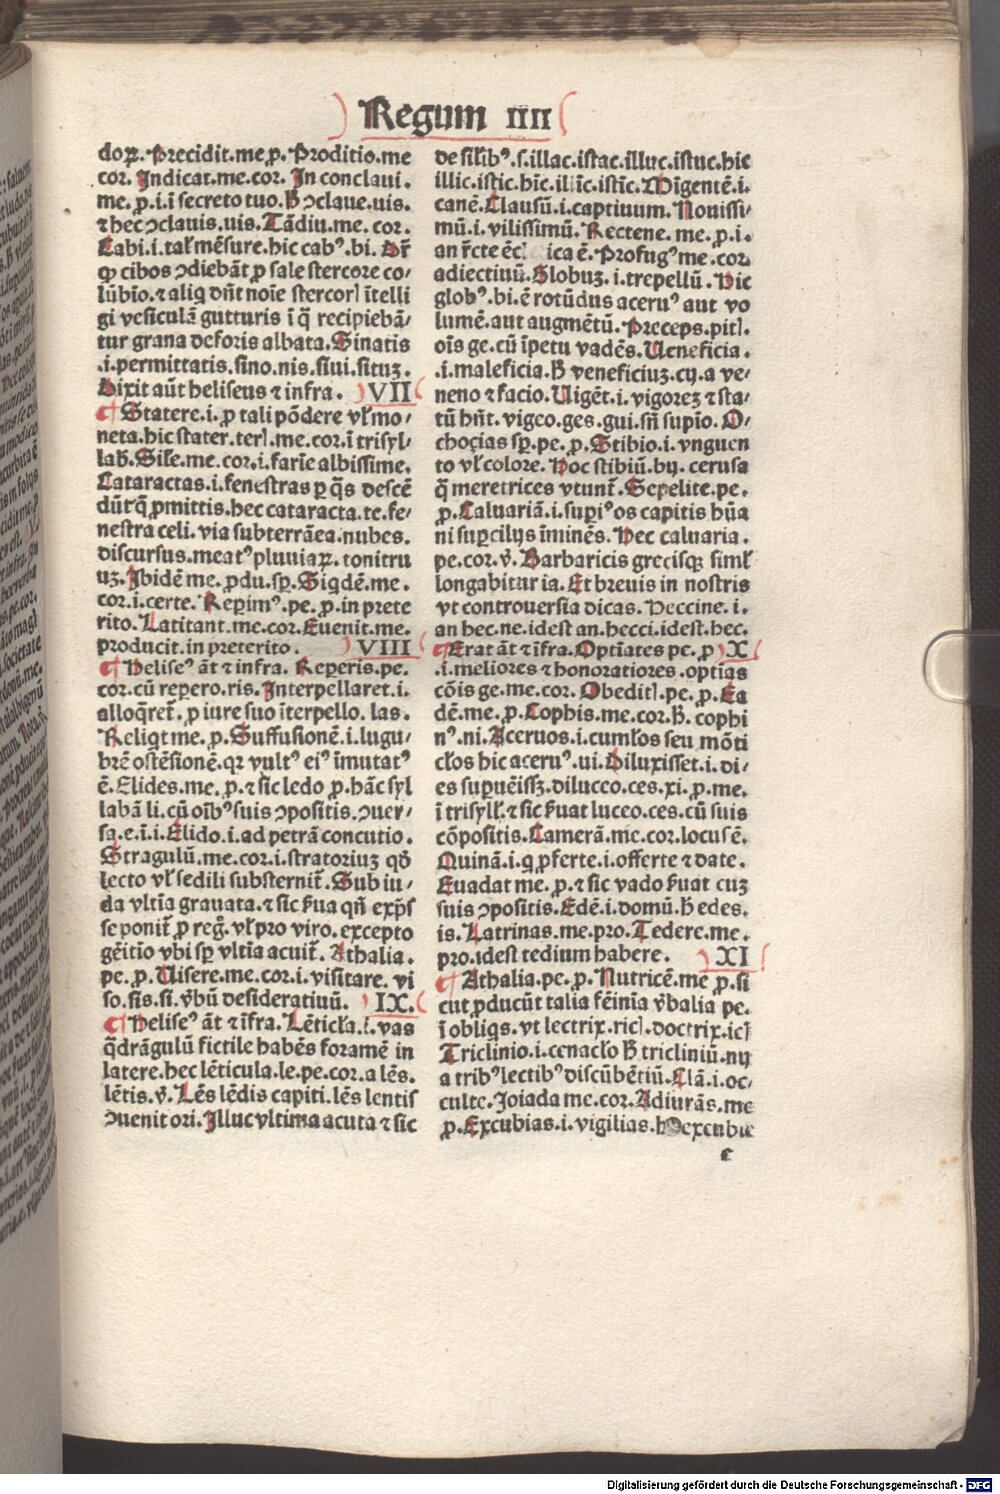 Regum IIII
doꝝ. Precidit.me.ꝓ. Proditio.me
cor. Indicat.me.cor. In conclaui.
me. ꝓ.i.ī secreto tuo. B̄ ↄclaue.uis.
⁊ hec ↄclauis.uis. Tādiu.me.cor.
Cabi.i.tal̄ mēsure.hic cabꝰ.bi. Dr̄
ꝙ cibos ↄdiebāt ꝓ sale stercore co/
lūbio.⁊ aliq̨ dn̄t noīe stercorꝭ ītelli
gi vesiculā gutturis ī q̄ recipiebā/
tur grana deforis albata. Sinatis
.i.permittatis.sino.nis.siui.situꝫ.
Dixit aūt heliseus ⁊ infra. VII
¶ Statere.i.ꝓ tali pōdere vl̄ mo/
neta.hic stater.terꝭ.me.cor.ī trisyl/
lab̄. Sile.me.cor.i.farīe albissime.
Cataractas.i.fenestras ꝑ q̄s descē
dūt q̄ ꝓmittis.hec cataracta.te.fe/
nestra celi. via subterrānea.nubes.
discursus.meatꝰ pluuiaꝝ. tonitru
uꝫ. Ibidē me. ꝓdu.sꝑ. Siqdē.me.
cor.i.certe. Reꝑimꝰ.pe.ꝓ.in prete
rito. Latitant.me.cor. Euenit.me.
producit.in preterito. VIII
¶ Heliseꝰ āt ⁊ infra. Reꝑeris.pe.
cor.cū reꝑero.ris. Interpellaret.i.
alloq̄ret̄. ꝓ iure suo īterpello. las.
Religt me. ꝓ. Suffusionē.i.lugu/
brē ostēsionē.qꝛ vultꝰ eiꝰ īmutatꝰ
ē. Elides.me. ꝓ. ⁊ sic ledo ꝓ.hāc syl
labā li.cū oībꝰ suis ↄpositis. ↄuer/
sa.e.ī.i. Elido.i.ad petrā concutio.
Stragulū.me.cor.i.stratoriuꝫ qđ
lecto vl̄ sedili substernit̄. Sub iu/
da vltīa grauata.⁊ sic ẜua qn̄ exp̄s
se ponit̄ ꝓ reg̅. vl̄ pro viro.excepto
gēitīo vbi sꝑ vltīa acuit̄. Athalia.
pe. ꝓ. Visere.me.cor.i.visitare. vi
so.sis.si. v̄bū desideratiuū. IX.
¶ Heliseꝰ āt ⁊ īfra. Lēticl̄a.i. vas
q̄drāgulū fictile habēs foramē in
latere.hec lēticula.le.pe.cor.a lēs.
lētis. v̄. Lēs lēdis capiti.lēs lentis
ↄuenit ori. Illuc vltima acuta ⁊ sic
de sil̄ibꝰ.s.illac.istac.illuc.istuc.hic
illic.istic.hīc.illīc.istīc. Mīgentē.i.
canē. Clausū.i.captiuum. Nouissi/
mū.i.vilissimū. Rectene.me. ꝓ.i.
an r̄cte ēcl ica ē. Profugꝰ me.cor.
adiectiuū. Globuꝫ.i.trepellū. Hic
globꝰ.bi.ē rotūdus aceruꝰ aut vo
lumē.aut augmētū. Preceps.pitꝭ.
oīs ge.cū īpetu vadēs. Veneficia.
.i.maleficia. B̄ veneficiuꝫ.cij.a ve/
neno ⁊ facio. Vigēt.i.vigoreꝫ ⁊ sta/
tū hn̄t. vigeo.ges.gui.sn̄ supīo. O/
choçias sꝑ.pe. ꝓ. Stibio.i.vnguen
to vl̄ colore. Hoc stibiū.bij.cerusa
q̄ meretrices vtunt̄. Sepelite.pe.
ꝓ. Caluariā.i.suꝑiꝰ os capitis hūa
ni suꝑcilijs īminēs. Hec caluaria.
pe.cor. v̄. Barbaricis grecisqꝫ siml̄
longabitur ia. Et breuis in nostris
vt controuersia dicas. Heccine.i.
an hec.ne.idest an.hecci.idest.hec.
¶ Erat āt ⁊ īfra. Optīates pe. ꝓ X
.i.meliores ⁊ honoratiores.optīas
cōis ge.me.cor. Obeditꝭ.pe. ꝓ. Ea
dē.me. ꝓ. Cophis.me.cor. B̄. cophi
nꝰ.ni. Aceruos.i.cuml̄os seu mōti
cl̄os hic aceruꝰ.ui. Diluxisset.i.di/
es suꝑuēissꝫ.diluceo.ces.xi. ꝓ.me.
ī trisyll̄.⁊ sic ẜuat luceo.ces.cū suis
cōpositis. Camerā.me.cor.locus ē.
Quinā.i.q̨ ꝓferte.i.offerte ⁊ date.
Euadat me. ꝓ.⁊ sic vado ẜuat cuꝫ
suis ↄpositis. Edē.i.domū.h̄ edes.
is. Latrinas.me.pro. Tedere.me.
pro.idest tedium habere. XI
¶ Athalia.pe. ꝓ. Nutricē.me ꝓ.si
cut ꝓducūt talia fēinīa v̄balia pe.
ī obliqs.vt lectrix.ricꝭ.doctrix.icꝭ
Triclinio.i.cenacl̄o B̄ tricliniū.nij
a tribꝰ lectibꝰ discūbētiū. Clā.i.oc/
culte. Joiada me.cor. Adiurās.me
ꝓ. Excubias.i.vigilias. excubie
c
Digitalisierung gefördert durch die Deutsche Forschungsgemeinschaft - DFG